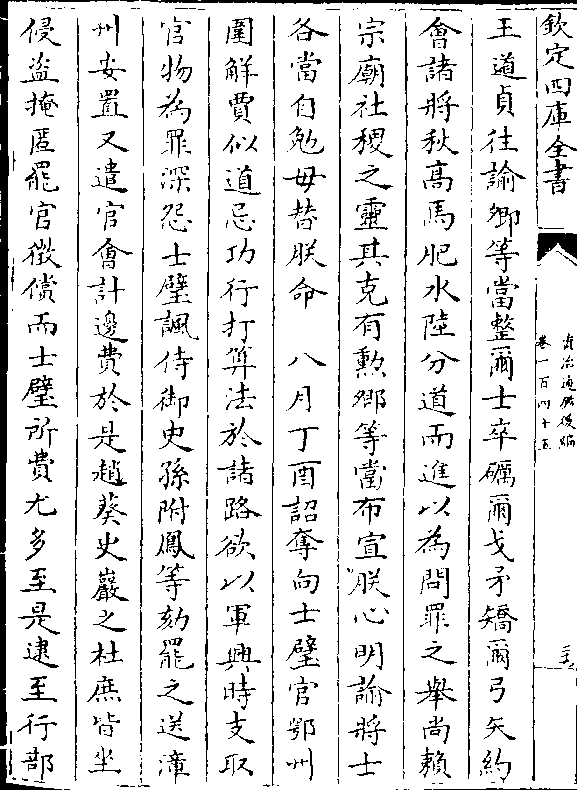 欽定四庫全書
資治通鑑後編
卷一百四十五
王道貞往諭卿等當整爾士卒礪爾戈矛矯爾弓矢約
會諸將秋高馬肥水陸分道而進以為問罪之舉尚賴
宗廟社稷之靈其克有勲鄉等當布宣朕心明諭將士
各當自勉毋替朕命　八月丁酉詔奪向士璧官鄂州
圍解賈似道忌功行打算法於諸路欲以軍興時支取
官物為罪深怨士璧諷侍御史孫附鳳等劾罷之送漳
州安置又遣官會計邊費於是趙葵史巖之杜庶皆坐
侵盗掩匿罷官徵償而士璧所費尤多至是逮至行部